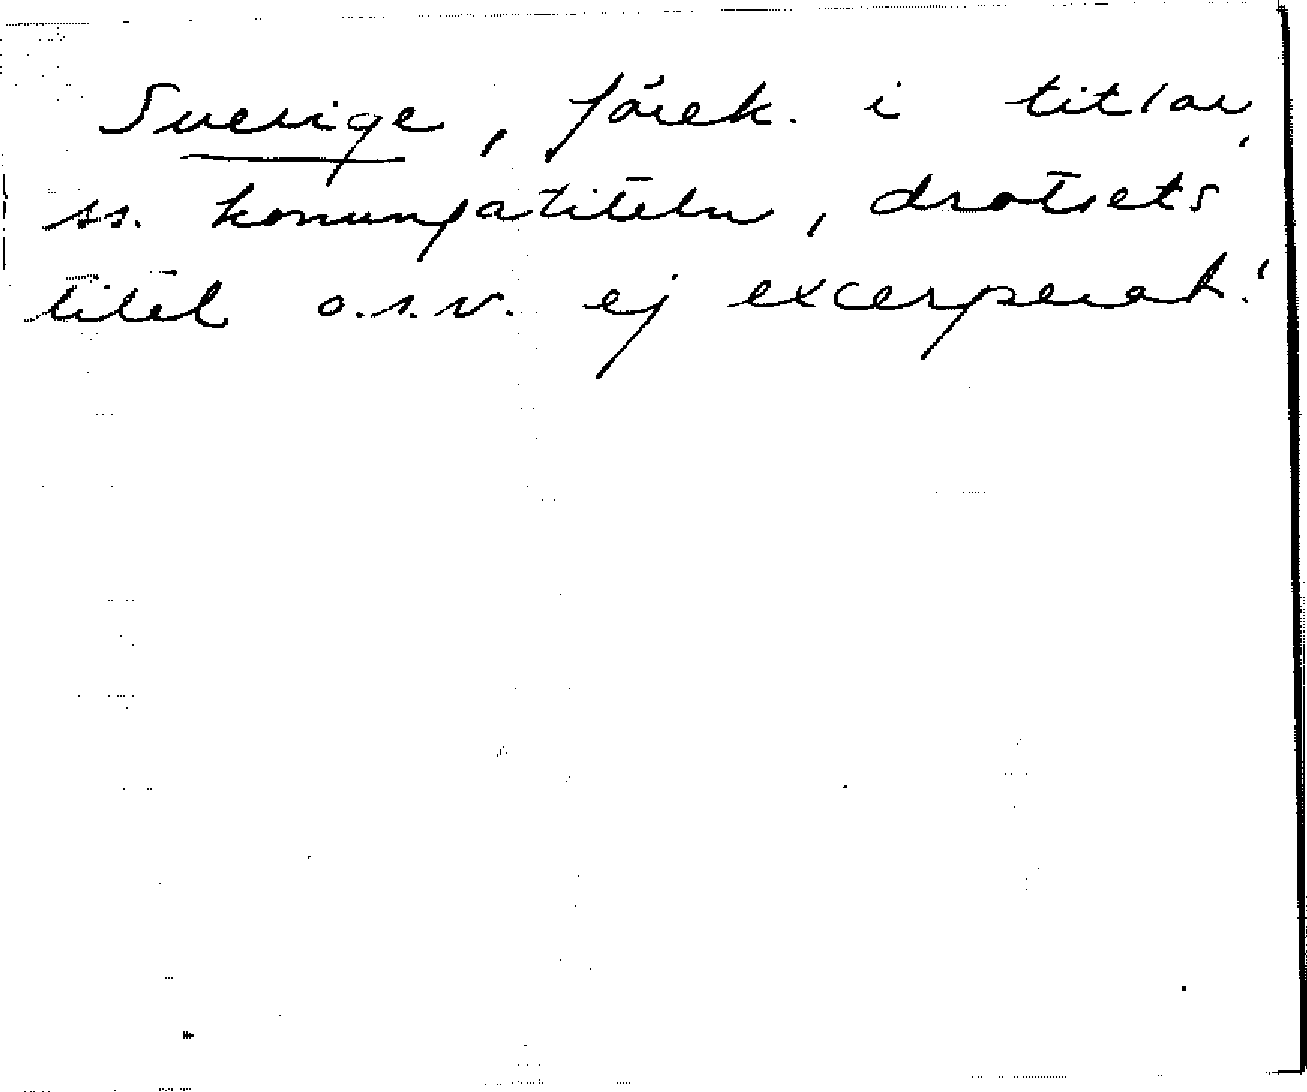 Sverige, förek. i titlar,
ss. konungatiteln, drotsets
titel o.s.v. ej excerperat!